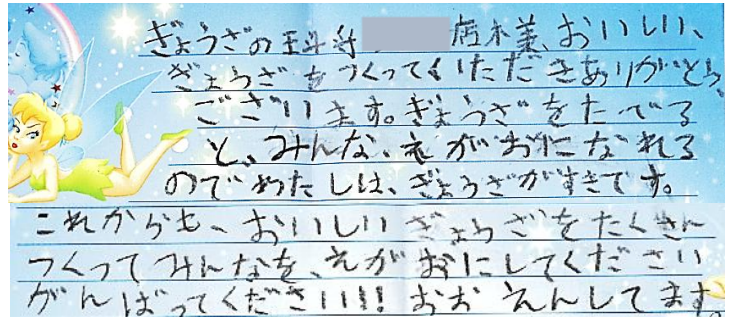 ぎょうざの王将 店木美、おいしい、
ぎょうざをつくってくいただきありがとう、
ございます。ぎょうざをたべる
と、みんな、えがおになれる
のでわたしは、ぎょうざがすきです。
これからも、おいしいぎょうざをたくさん
つくってみんなを、えがおにしてください
がんばってください!!! おおえんしてます。